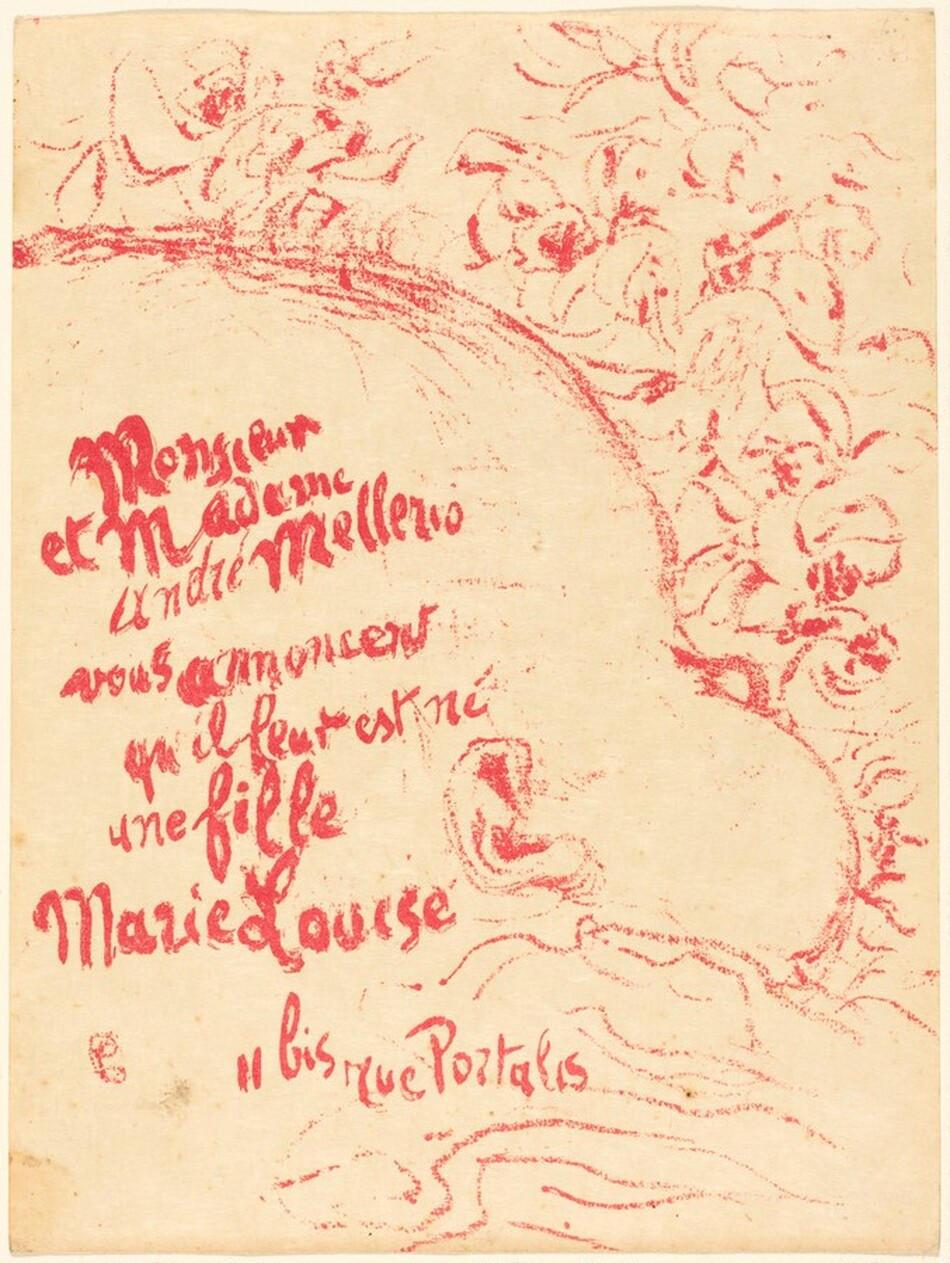 Monsieur
et Madame
André Mellerio
vous annoncent
qu'il leur est né
une fille
Marie Louise
11 bis rue Portalis